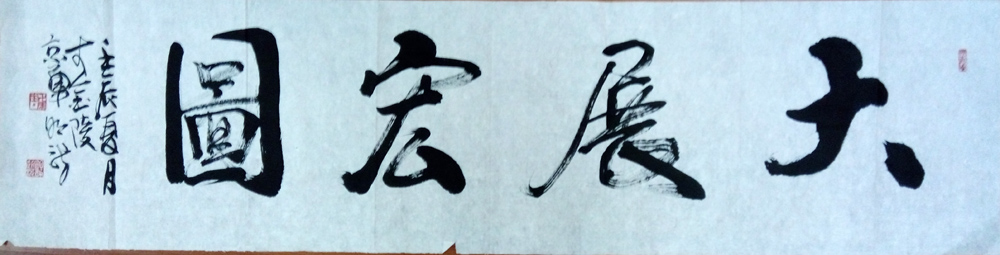 大展宏圖
壬辰夏月
於金陵